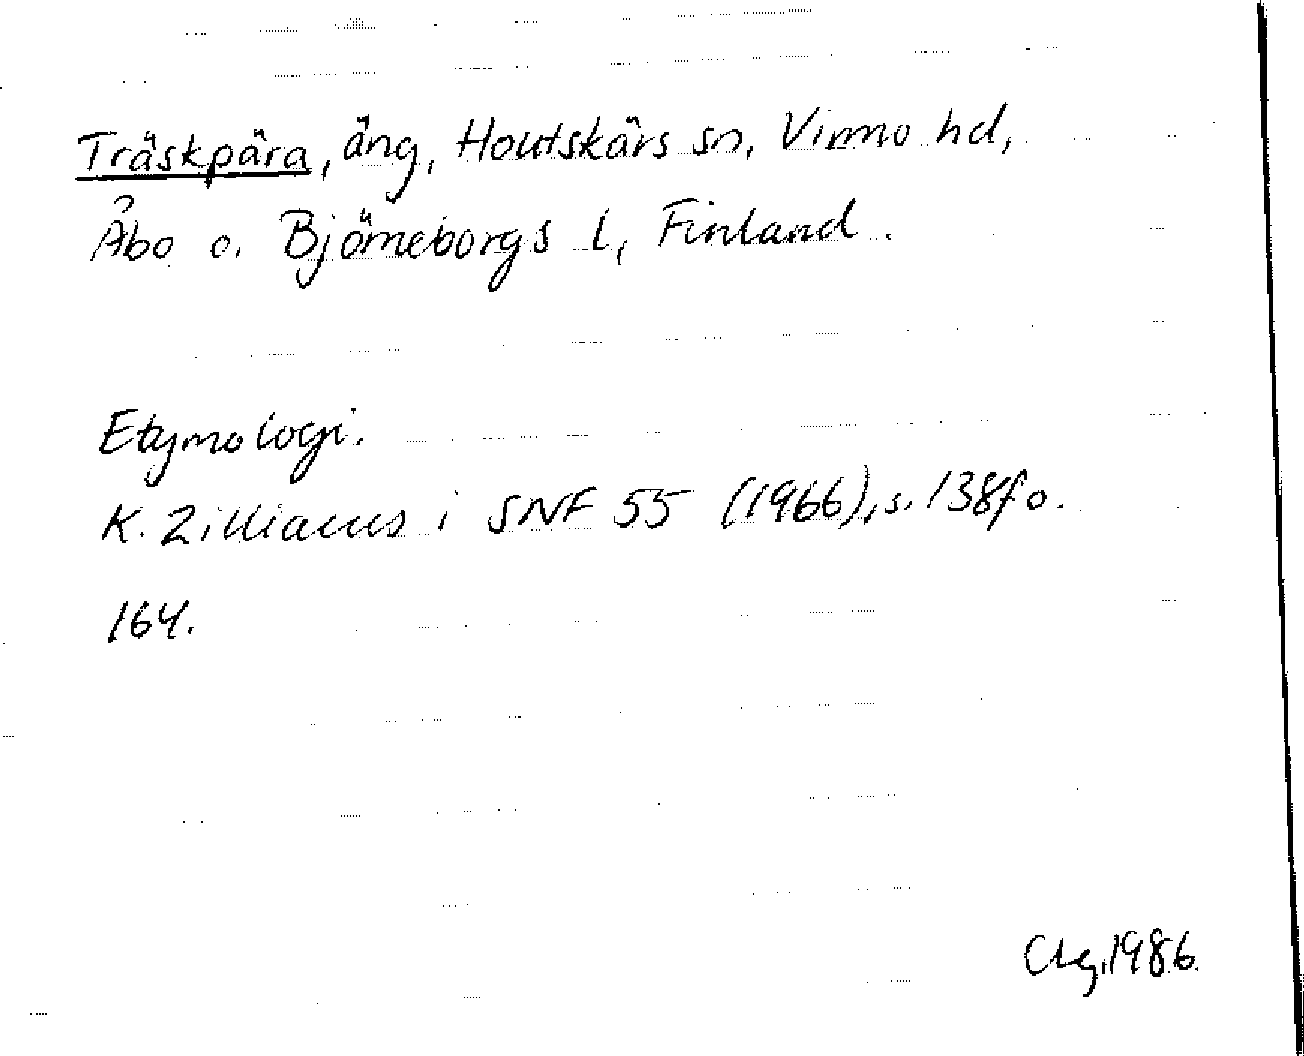 Träskpära, äng, Houtskärs sn, Virmo hd,
Åbo o. Björneborgs l, Finland.
Etymologi.
K. Zilliacus i SNF 55 (1966), s. 138f o.
164.
CLg, 1986.